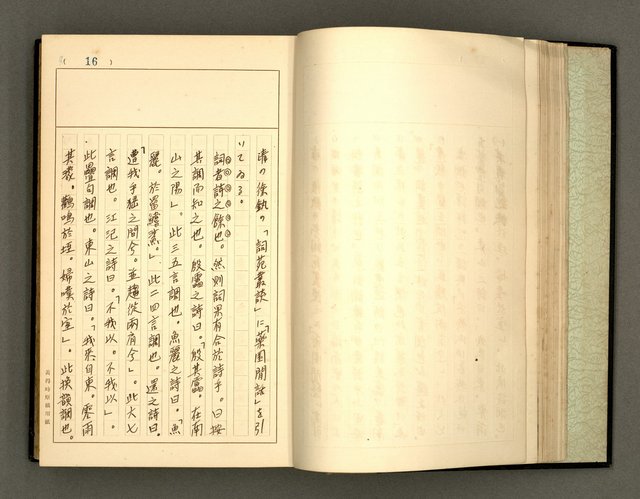 ( 16 )
清の徐釚の「詞苑叢談」に「薬園閒話」を引
いてゐる。
詞者詩之餘也。然則詞果有合於詩乎。曰按
其調而知之也。殷靁之詩曰。「殷其靁。在南
山之陽」。此三五言調也。魚麗之詩曰。「魚
麗。於罶鱨鯊。」此二四言調也。還之詩曰。
「遭我乎猱之間兮。並趨從兩肩兮」。此六七
言調也。江汜之詩曰。「不我以。不我以」。
此疊句調也。東山之詩曰。「我來自東。零雨
其濛。鸛鳴於垤。婦嘆於室」。此換韻調也。
黃得時原稿用紙